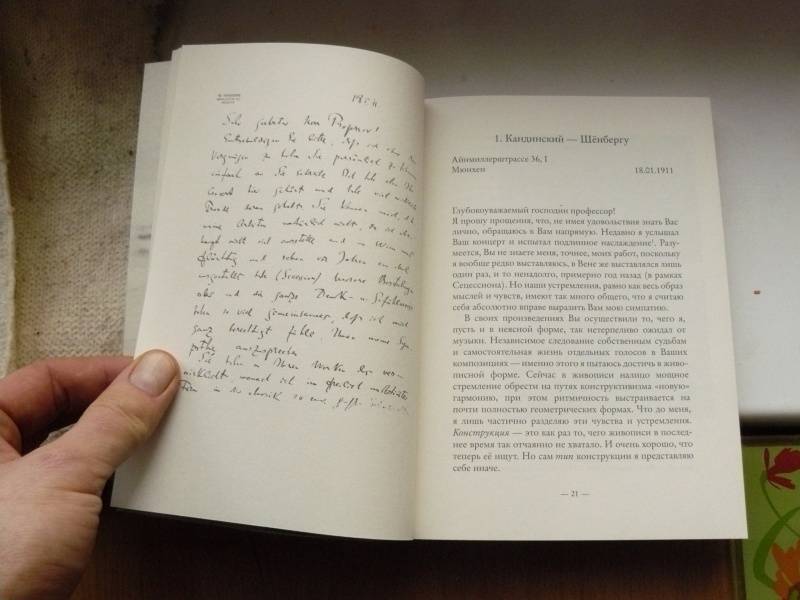 Sehr geehrter Herr Professor!
Entschuldigen Sie bitte, daß ich ohne das
Vergnügen zu haben Sie persönlich zu kennen
einfach an Sie schreibe. Ich habe eben Ihr
Concert hier gehört und habe viel wirkliche
Freude daran gehabt. Sie kennen mich, d. h.
meine Arbeiten natürlich nicht, da ich
nicht viel ausstelle und in Wien nur
flüchtig und schon vor Jahren
ausgestellt habe (Secession). Unsere Bestrebungen
aber und die ganze Denk- u. Gefühlsweise
haben so viel gemeinsames, daß ich mich
ganz berechtigt fühle, Ihnen meine Sym-
pathie auszusprechen.
Sie haben in Ihren Werken das ver-
wirklicht, wonach ich in
Form in der Musik so eine große
1. Кандинский — Шёнбергу
Айнмиллерштрассе 36, I
Мюнхен 18.01.1911
Глубокоуважаемый господин профессор!
Я прошу прощения, что, не имея удовольствия знать Вас
лично, обращаюсь к Вам напрямую. Недавно я услышал
Ваш концерт и испытал подлинное наслаждение¹. Разу-
меется, Вы не знаете меня, точнее, моих работ, поскольку
я вообще редко выставляюсь, в Вене же выставлялся лишь
один раз, и то ненадолго, примерно год назад (в рамках
Сецессиона). Но наши устремления, равно как весь образ
мыслей и чувств, имеют так много общего, что я считаю
себя абсолютно вправе выразить Вам мою симпатию.
В своих произведениях Вы осуществили то, чего я,
пусть и в неясной форме, так нетерпеливо ожидал от
музыки. Независимое следование собственным судьбам
и самостоятельная жизнь отдельных голосов в Ваших
композициях — именно этого я пытаюсь достичь в живо-
писной форме. Сейчас в живописи налицо мощное
стремление обрести на путях конструктивизма «новую»
гармонию, при этом ритмичность выстраивается на
почти полностью геометрических формах. Что до меня,
я лишь частично разделяю эти чувства и устремления.
Конструкция — это как раз то, чего живописи в послед-
нее время так отчаянно не хватало. И очень хорошо, что
теперь её ищут. Но сам тип конструкции я представляю
себе иначе.
— 21 —